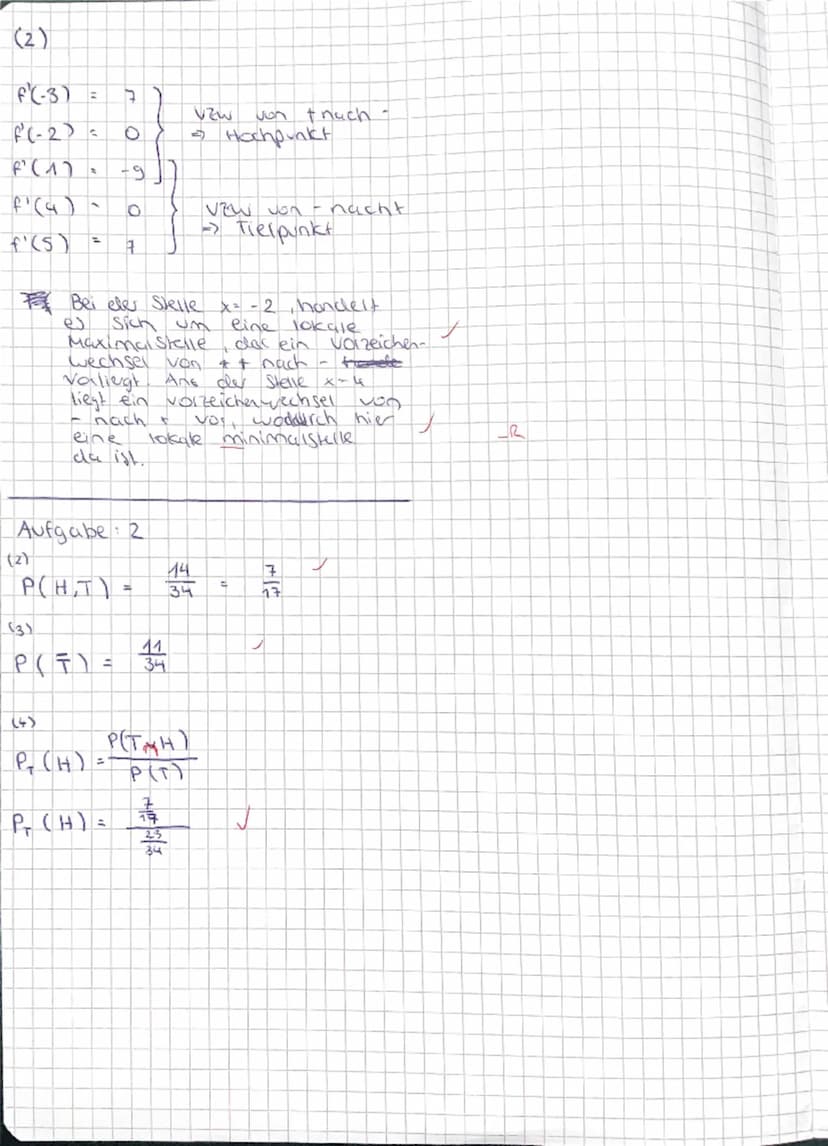 (2)
f'(-3) = 7
VZW von + nach -
f'(-2) = 0
=> Hochpunkt
f'(1) = -9
f'(4) = 0
VZW von - nach +
f'(5) = 7
=> Tiefpunkt
Bei der Stelle x = -2, handelt
es sich um eine lokale
Maximalstelle, das ein Vorzeichen-
wechsel von + + nach -
vorliegt. Ans der Stelle x=4
liegt ein vorzeichenwechsel von
- nach + vor, wodurch hier
eine lokale minimalstelle
da ist.
_R
Aufgabe: 2
(2)
P(H,T) = 14/34 = 7/17
(3)
P(T̄) = 11/34
(4)
P_T(H) = P(T∩H)/P(T)
P_T(H) = (7/17)/(23/34)